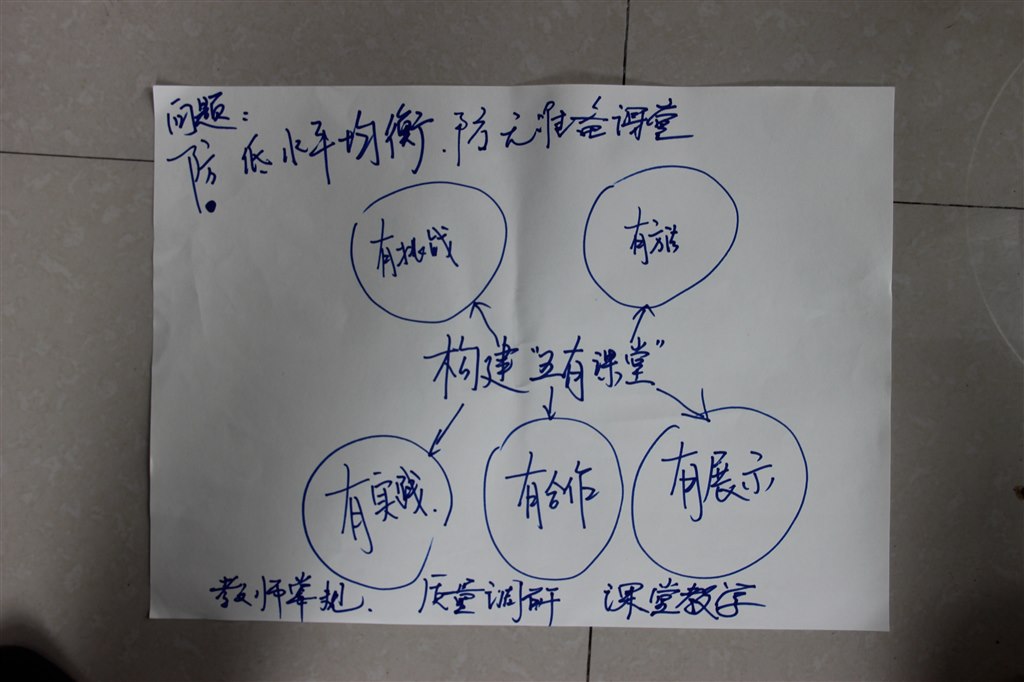 问题：
防低水平均衡.防无准备课堂
有挑战
有方法
构建"五有课堂"
有实践.
有合作
有展示
教师常规. 质量调研 课堂教学